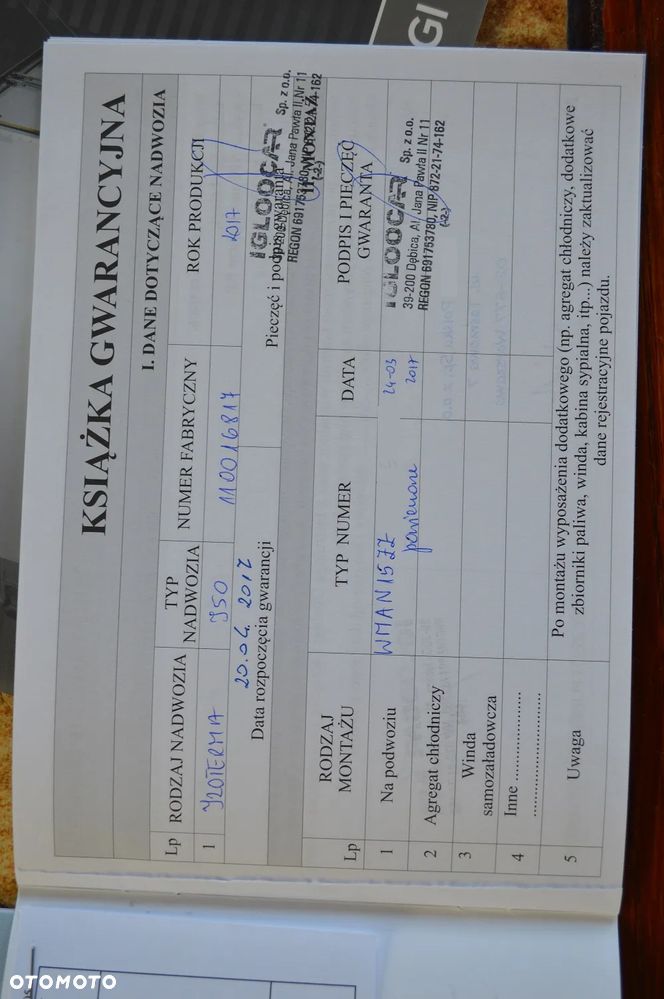 GI
KSIĄŻKA GWARANCYJNA
I. DANE DOTYCZĄCE NADWOZIA
Lp RODZAJ NADWOZIA TYP NADWOZIA NUMER FABRYCZNY ROK PRODUKCJI
1 IZOTERMA I50 110016817 2017
20.04.2017
Data rozpoczęcia gwarancji
Pieczęć i podpis gwaranta
IGLOOCAR Sp. z o.o.
39-200 Dębica, Al. Jana Pawła II Nr 11
REGON 691763780, NIP 872-21-74-162
(-2-)
II. MONTAŻ
Lp RODZAJ MONTAŻU TYP NUMER DATA PODPIS I PIECZĘĆ GWARANTA
1 Na podwoziu WMAN15ZZ 24-03 2017
IGLOOCAR Sp. z o.o.
39-200 Dębica, Al. Jana Pawła II Nr 11
REGON 691763780, NIP 872-21-74-162
(-2-)
2 Agregat chłodniczy
3 Winda samozaładowcza
4 Inne ......................
............................
5 Uwaga Po montażu wyposażenia dodatkowego (np. agregat chłodniczy, dodatkowe
zbiorniki paliwa, winda, kabina sypialna, itp...) należy zaktualizować
dane rejestracyjne pojazdu.
OTOMOTO